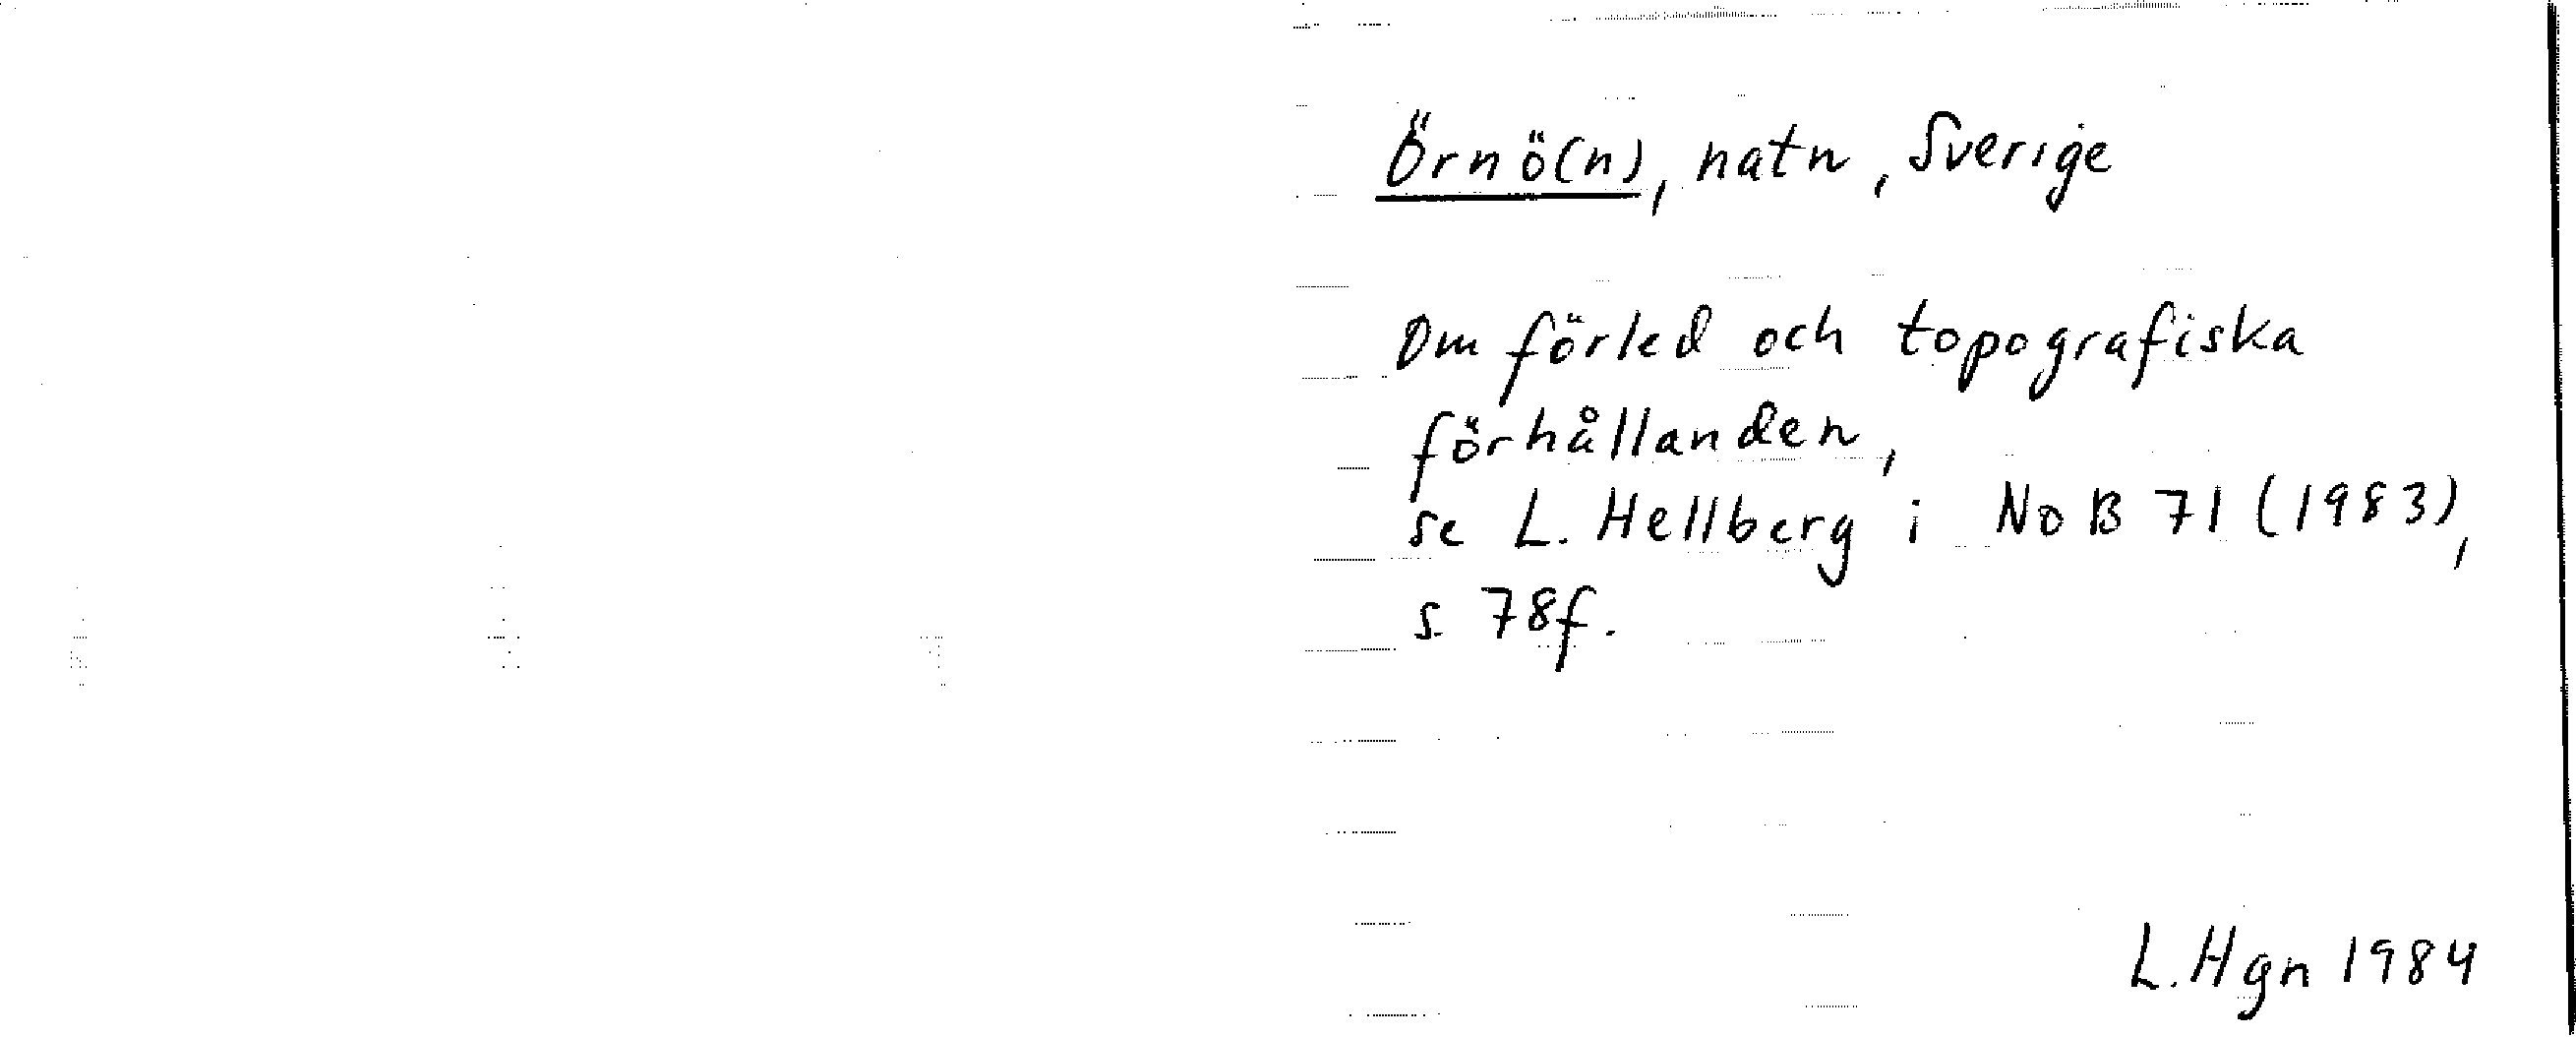 Örnö(n), natn, Sverige
Om förled och topografiska
förhållanden,
se L. Hellberg i NoB 71 (1983),
s. 78f.
L. Hgn 1984